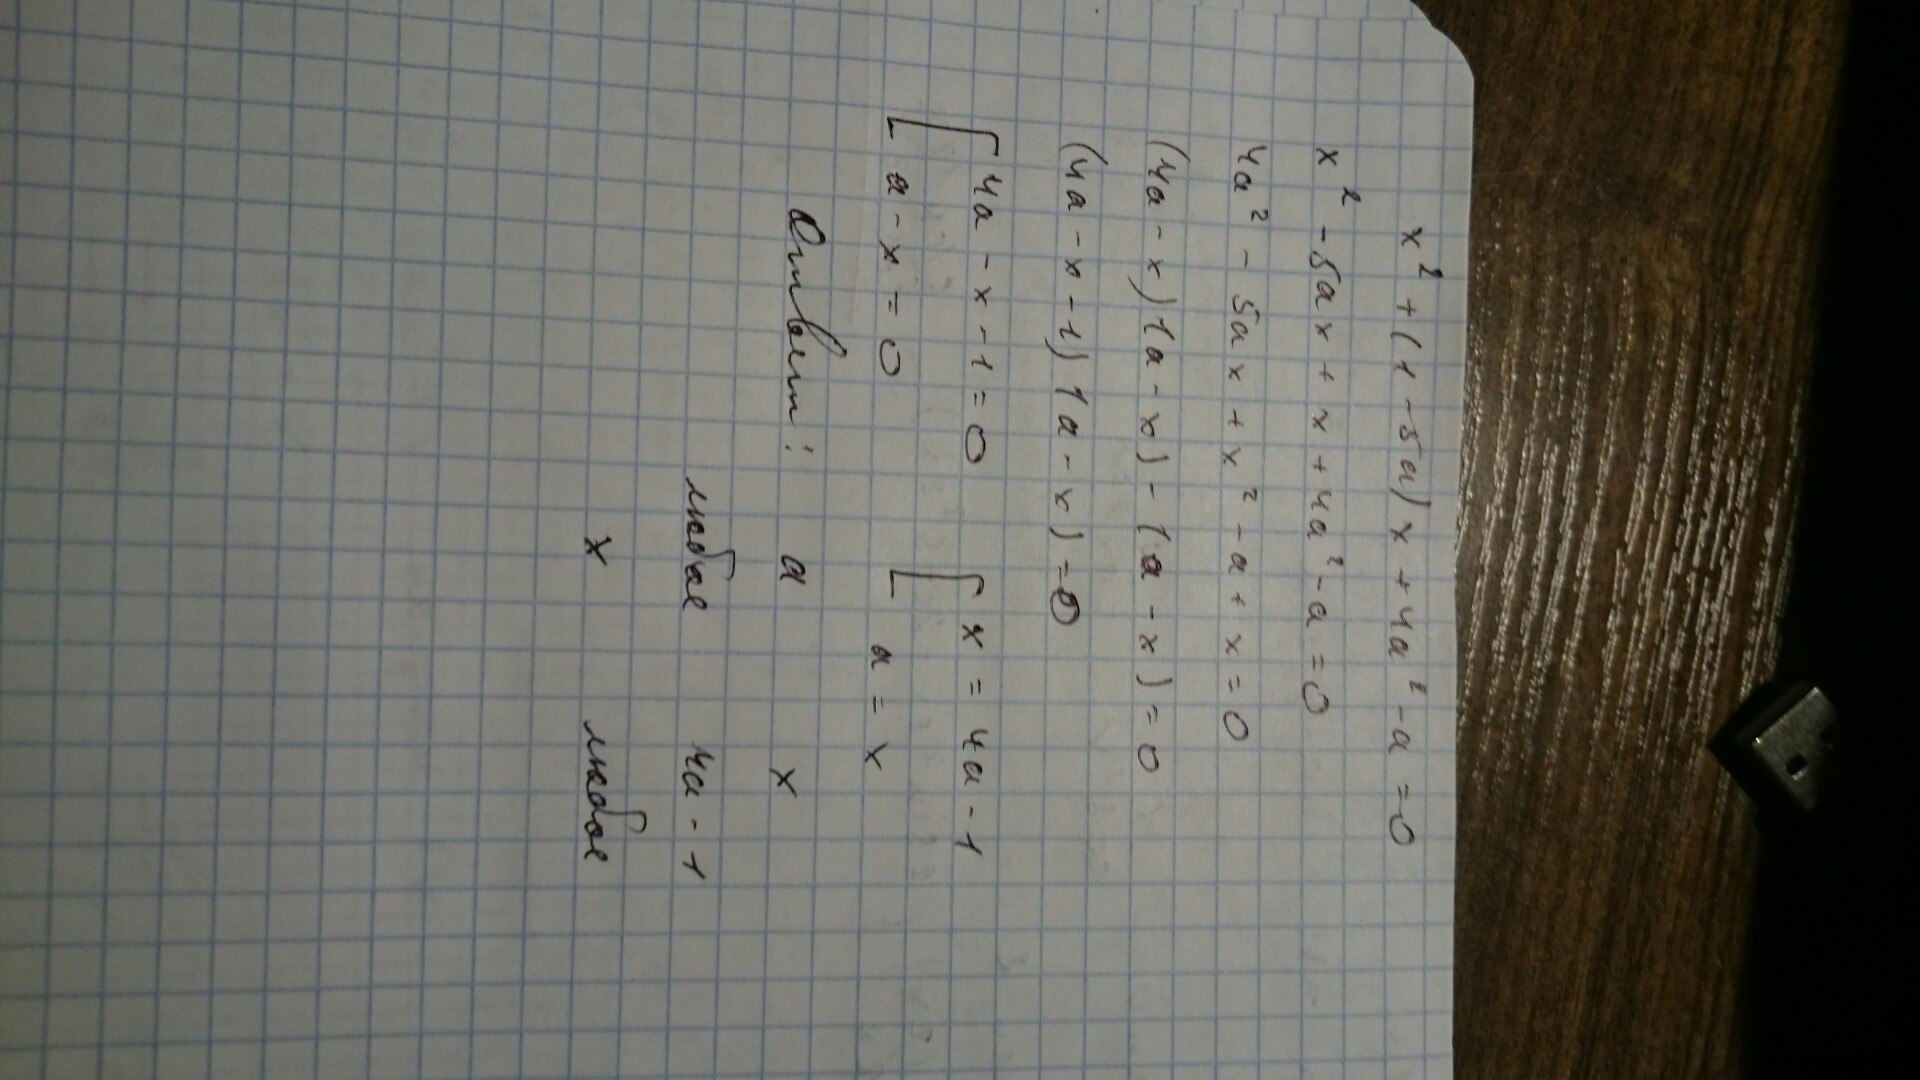 x² + (1 - 5a)x + 4a² - a = 0
x² - 5ax + x + 4a² - a = 0
4a² - 5ax + x² - a + x = 0
(4a - x)(a - x) - (a - x) = 0
(4a - x - 1)(a - x) = 0
[ 4a - x - 1 = 0 [ x = 4a - 1
a - x = 0 a = x
Ответ: a x
любое 4a - 1
x любое